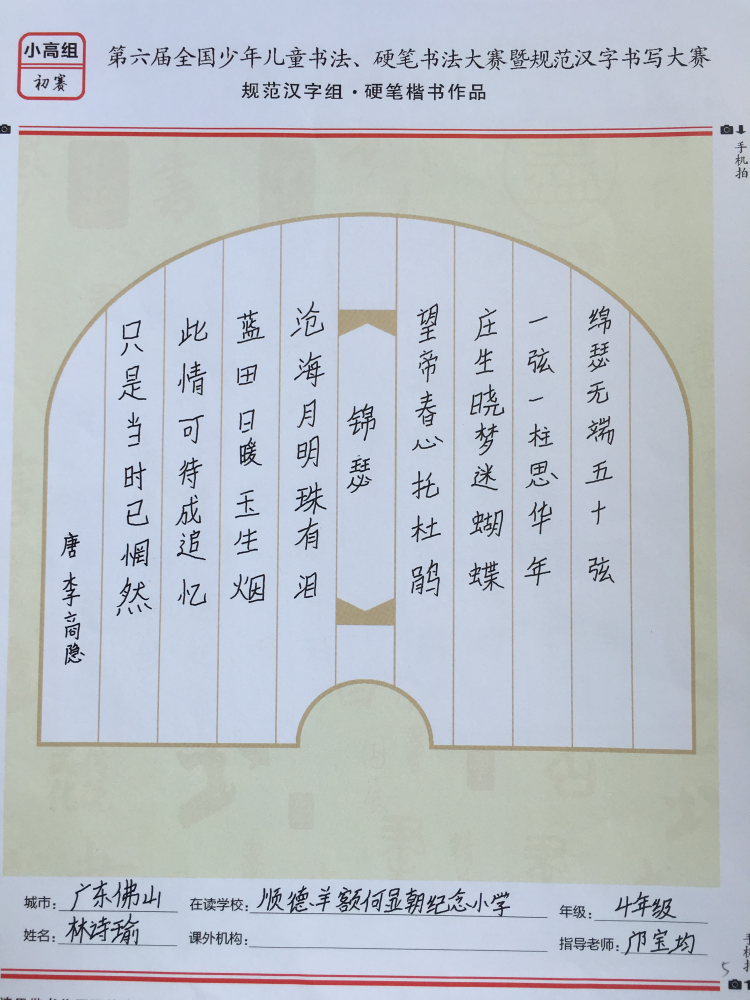 小高组
初赛
第六届全国少年儿童书法、硬笔书法大赛暨规范汉字书写大赛
规范汉字组·硬笔楷书作品
手机拍
绵瑟无端五十弦
一弦一柱思华年
庄生晓梦迷蝴蝶
望帝春心托杜鹃
锦瑟
沧海月明珠有泪
蓝田日暖玉生烟
此情可待成追忆
只是当时已惘然
唐 李商隐
城市: 广东佛山 在读学校: 顺德羊额何显朝纪念小学 年级: 4年级
姓名: 林诗瑜 课外机构: 指导老师: 邝宝均
5